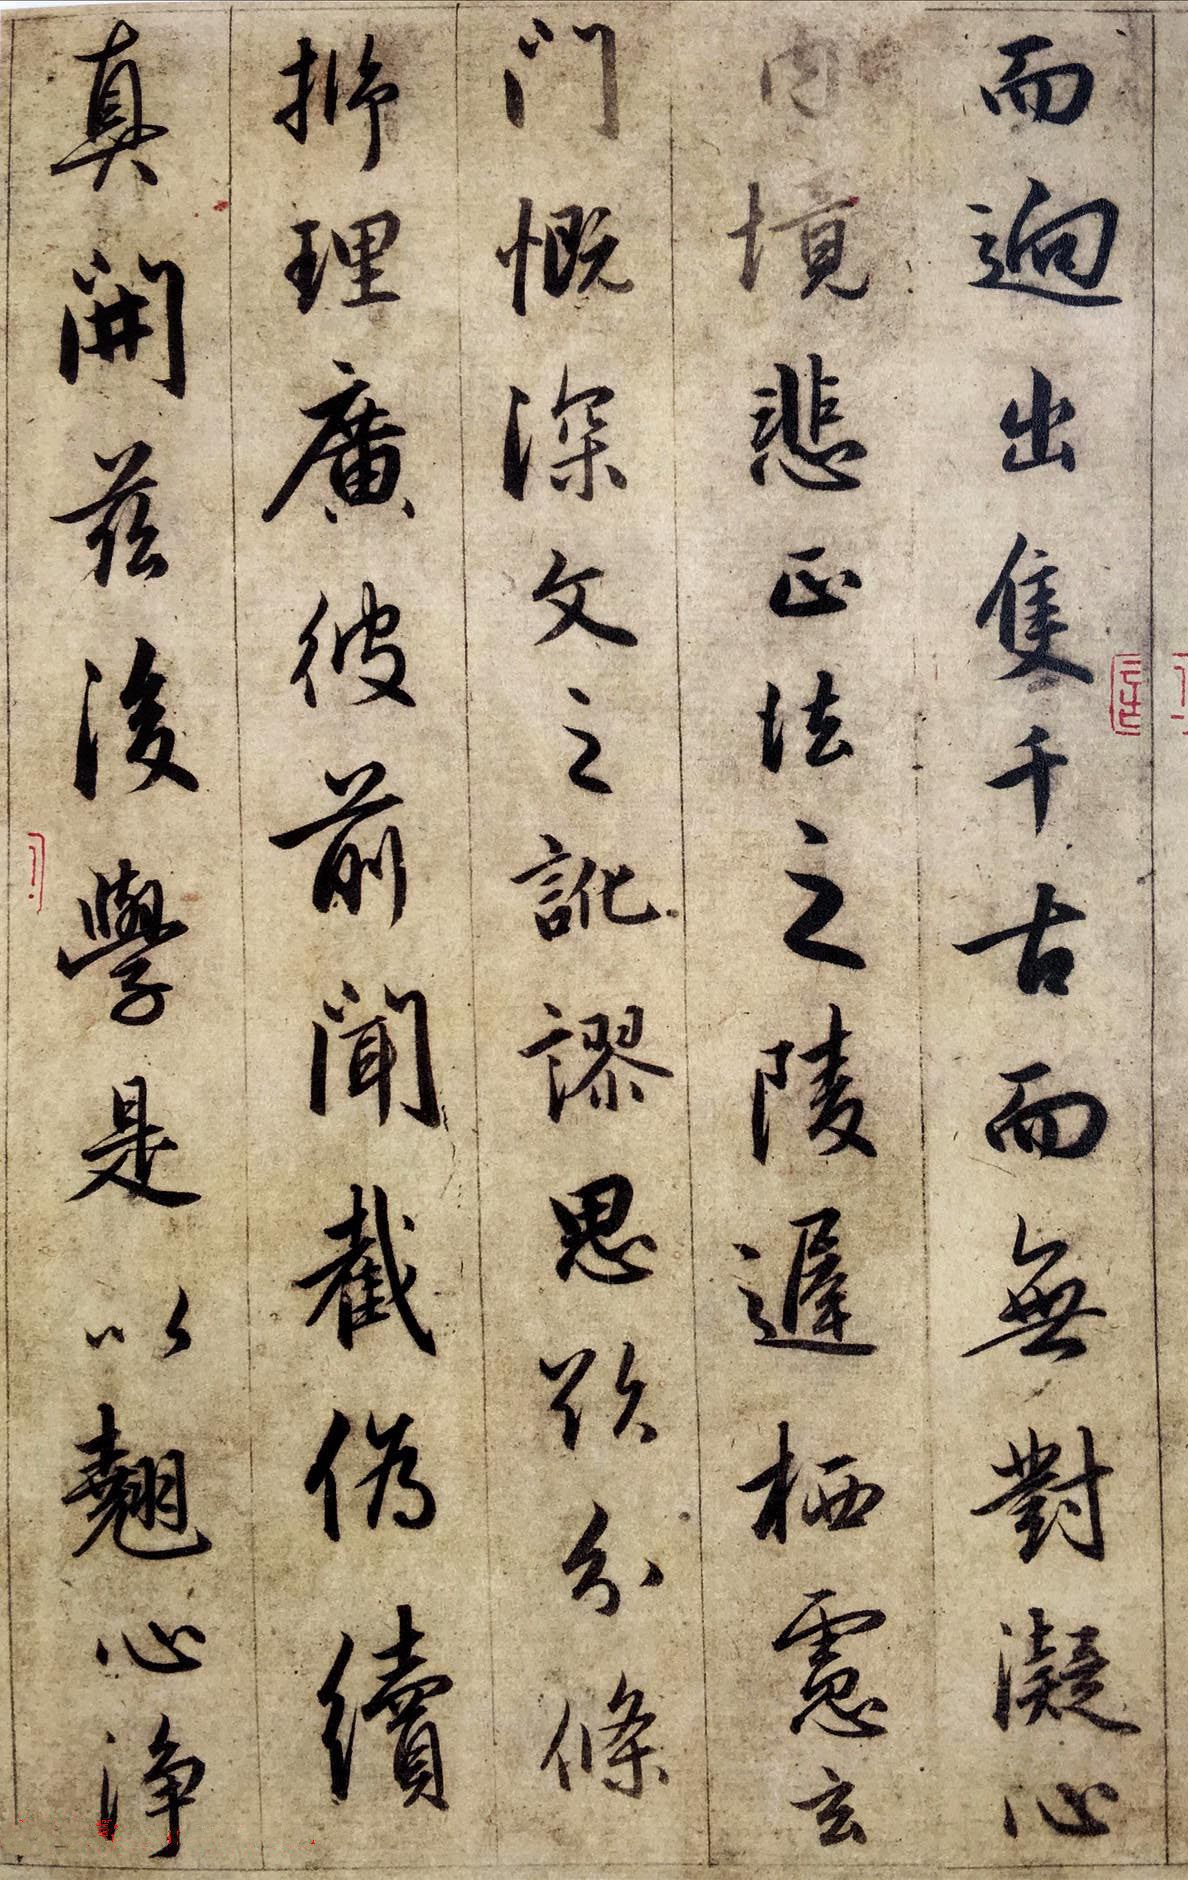 而迥出隻千古而無對凝心
内境悲正法之陵遲栖慮玄
門慨深文之訛謬思欲分條
揤理廣彼前聞截僞續
真開茲後學是以翹心淨